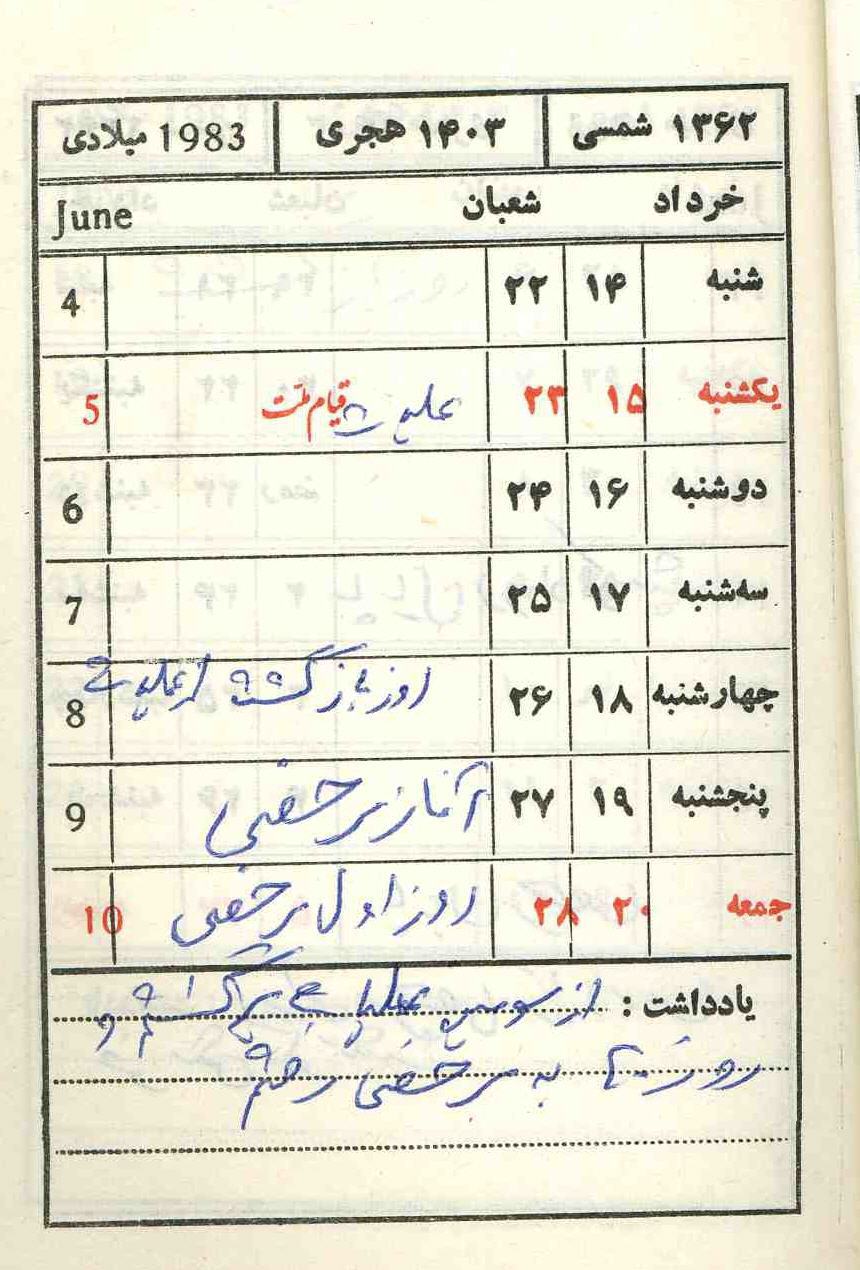 ۱۳۶۲ شمسی ۱۴۰۳ هجری 1983 میلادی
خرداد شعبان June
شنبه ۱۴ ۲۲ 4
یکشنبه ۱۵ ۲۳ قیام ملت 5
دوشنبه ۱۶ ۲۴ 6
سه‌شنبه ۱۷ ۲۵ 7
چهارشنبه ۱۸ ۲۶ روز بازگشت از عملیات 8
پنجشنبه ۱۹ ۲۷ آغاز مرخصی 9
جمعه ۲۰ ۲۸ روز اول مرخصی 10
یادداشت : از سومین عملیات برگشتم و
روز ۲۰ به مرخصی رفتم